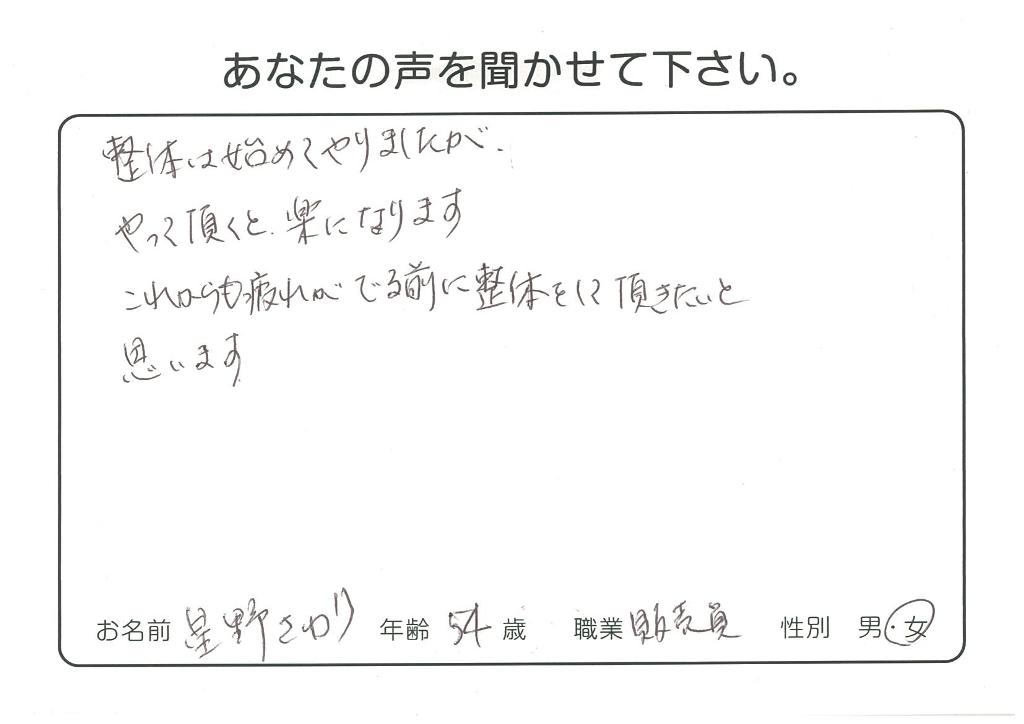 あなたの声を聞かせて下さい。
整体は始めてやりましたが、
やって頂くと、楽になります
これからも疲れがでる前に整体をして頂きたいと
思います
お名前 星野さゆり 年齢 54 歳 職業 販売員 性別 男・女